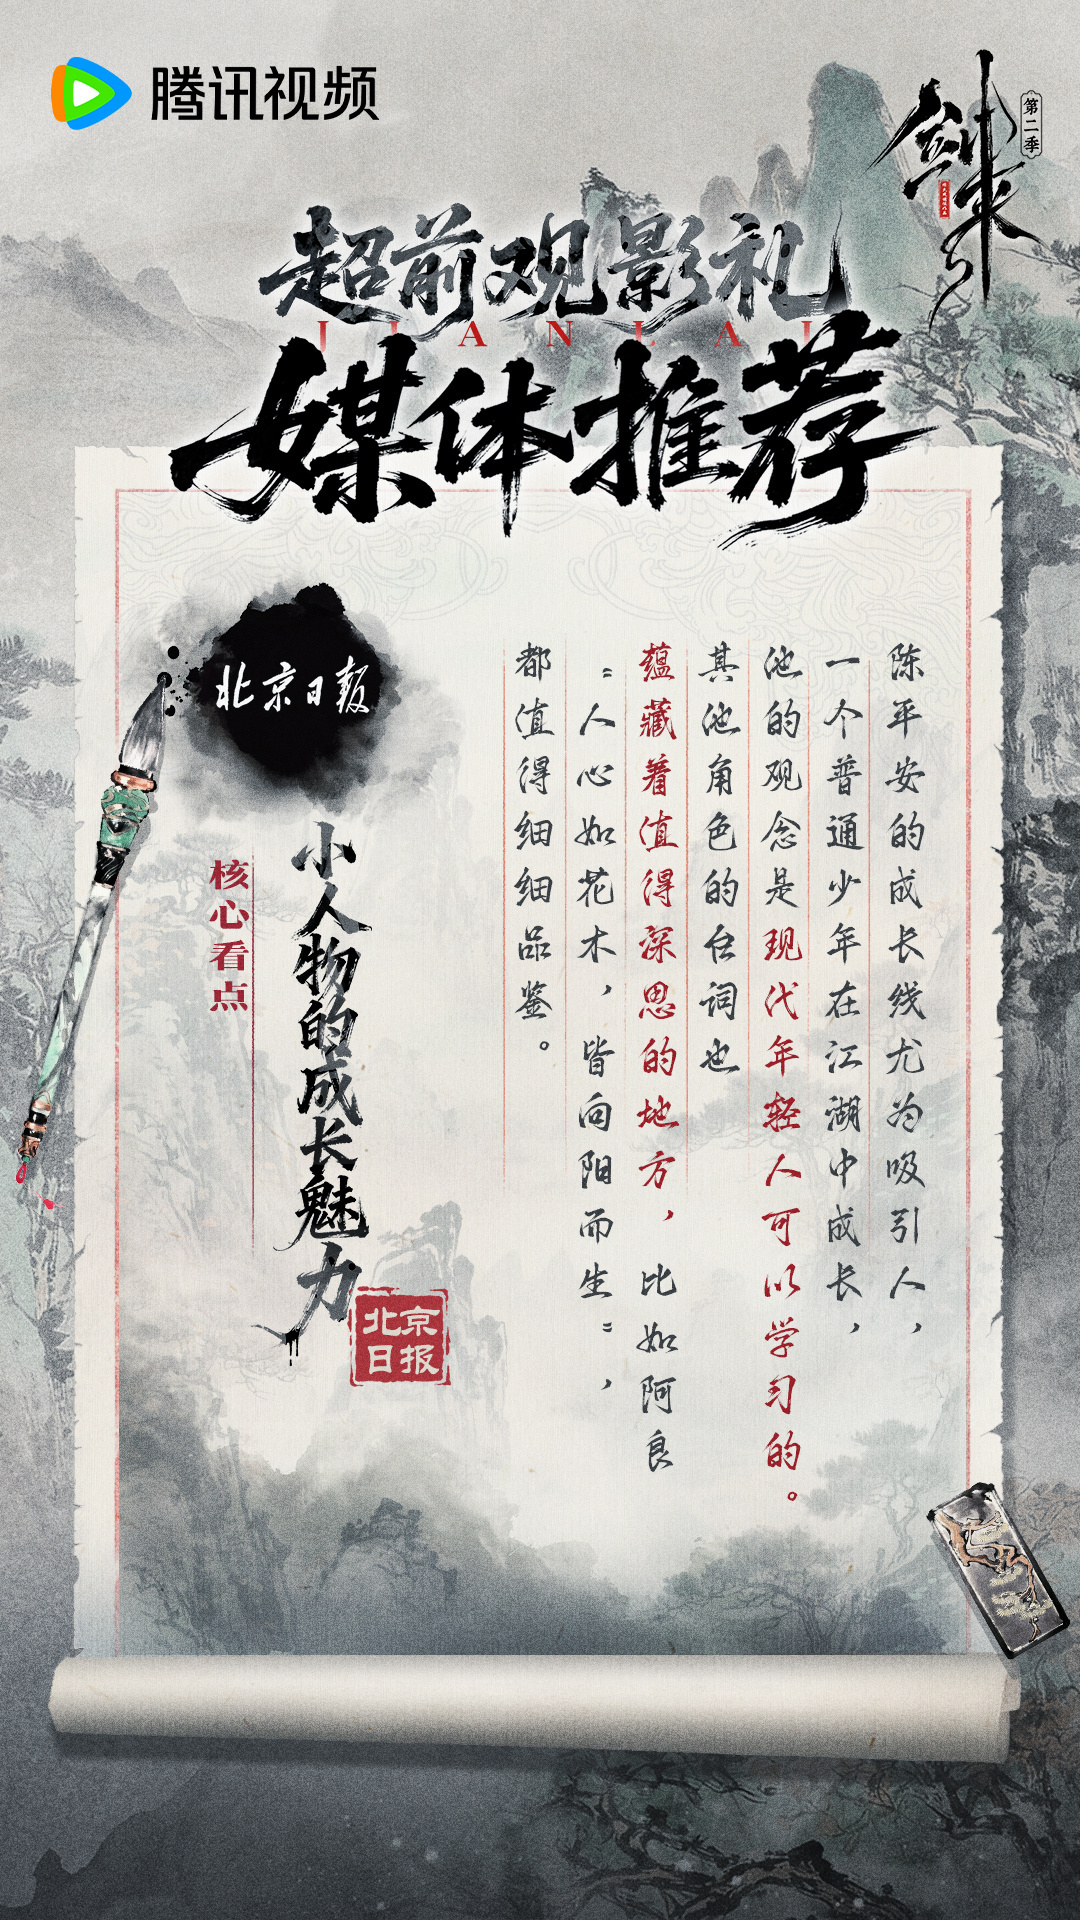 腾讯视频
剑来
第二季
超前观影礼
JIANLAI
媒体推荐
陈平安的成长线尤为吸引人，
一个普通少年在江湖中成长，
他的观念是现代年轻人可以学习的。
其他角色的台词也
蕴藏着值得深思的地方，比如阿良
“人心如花木，皆向阳而生”，
都值得细细品鉴。
北京日报
小人物的成长魅力
核心看点
北京
日报